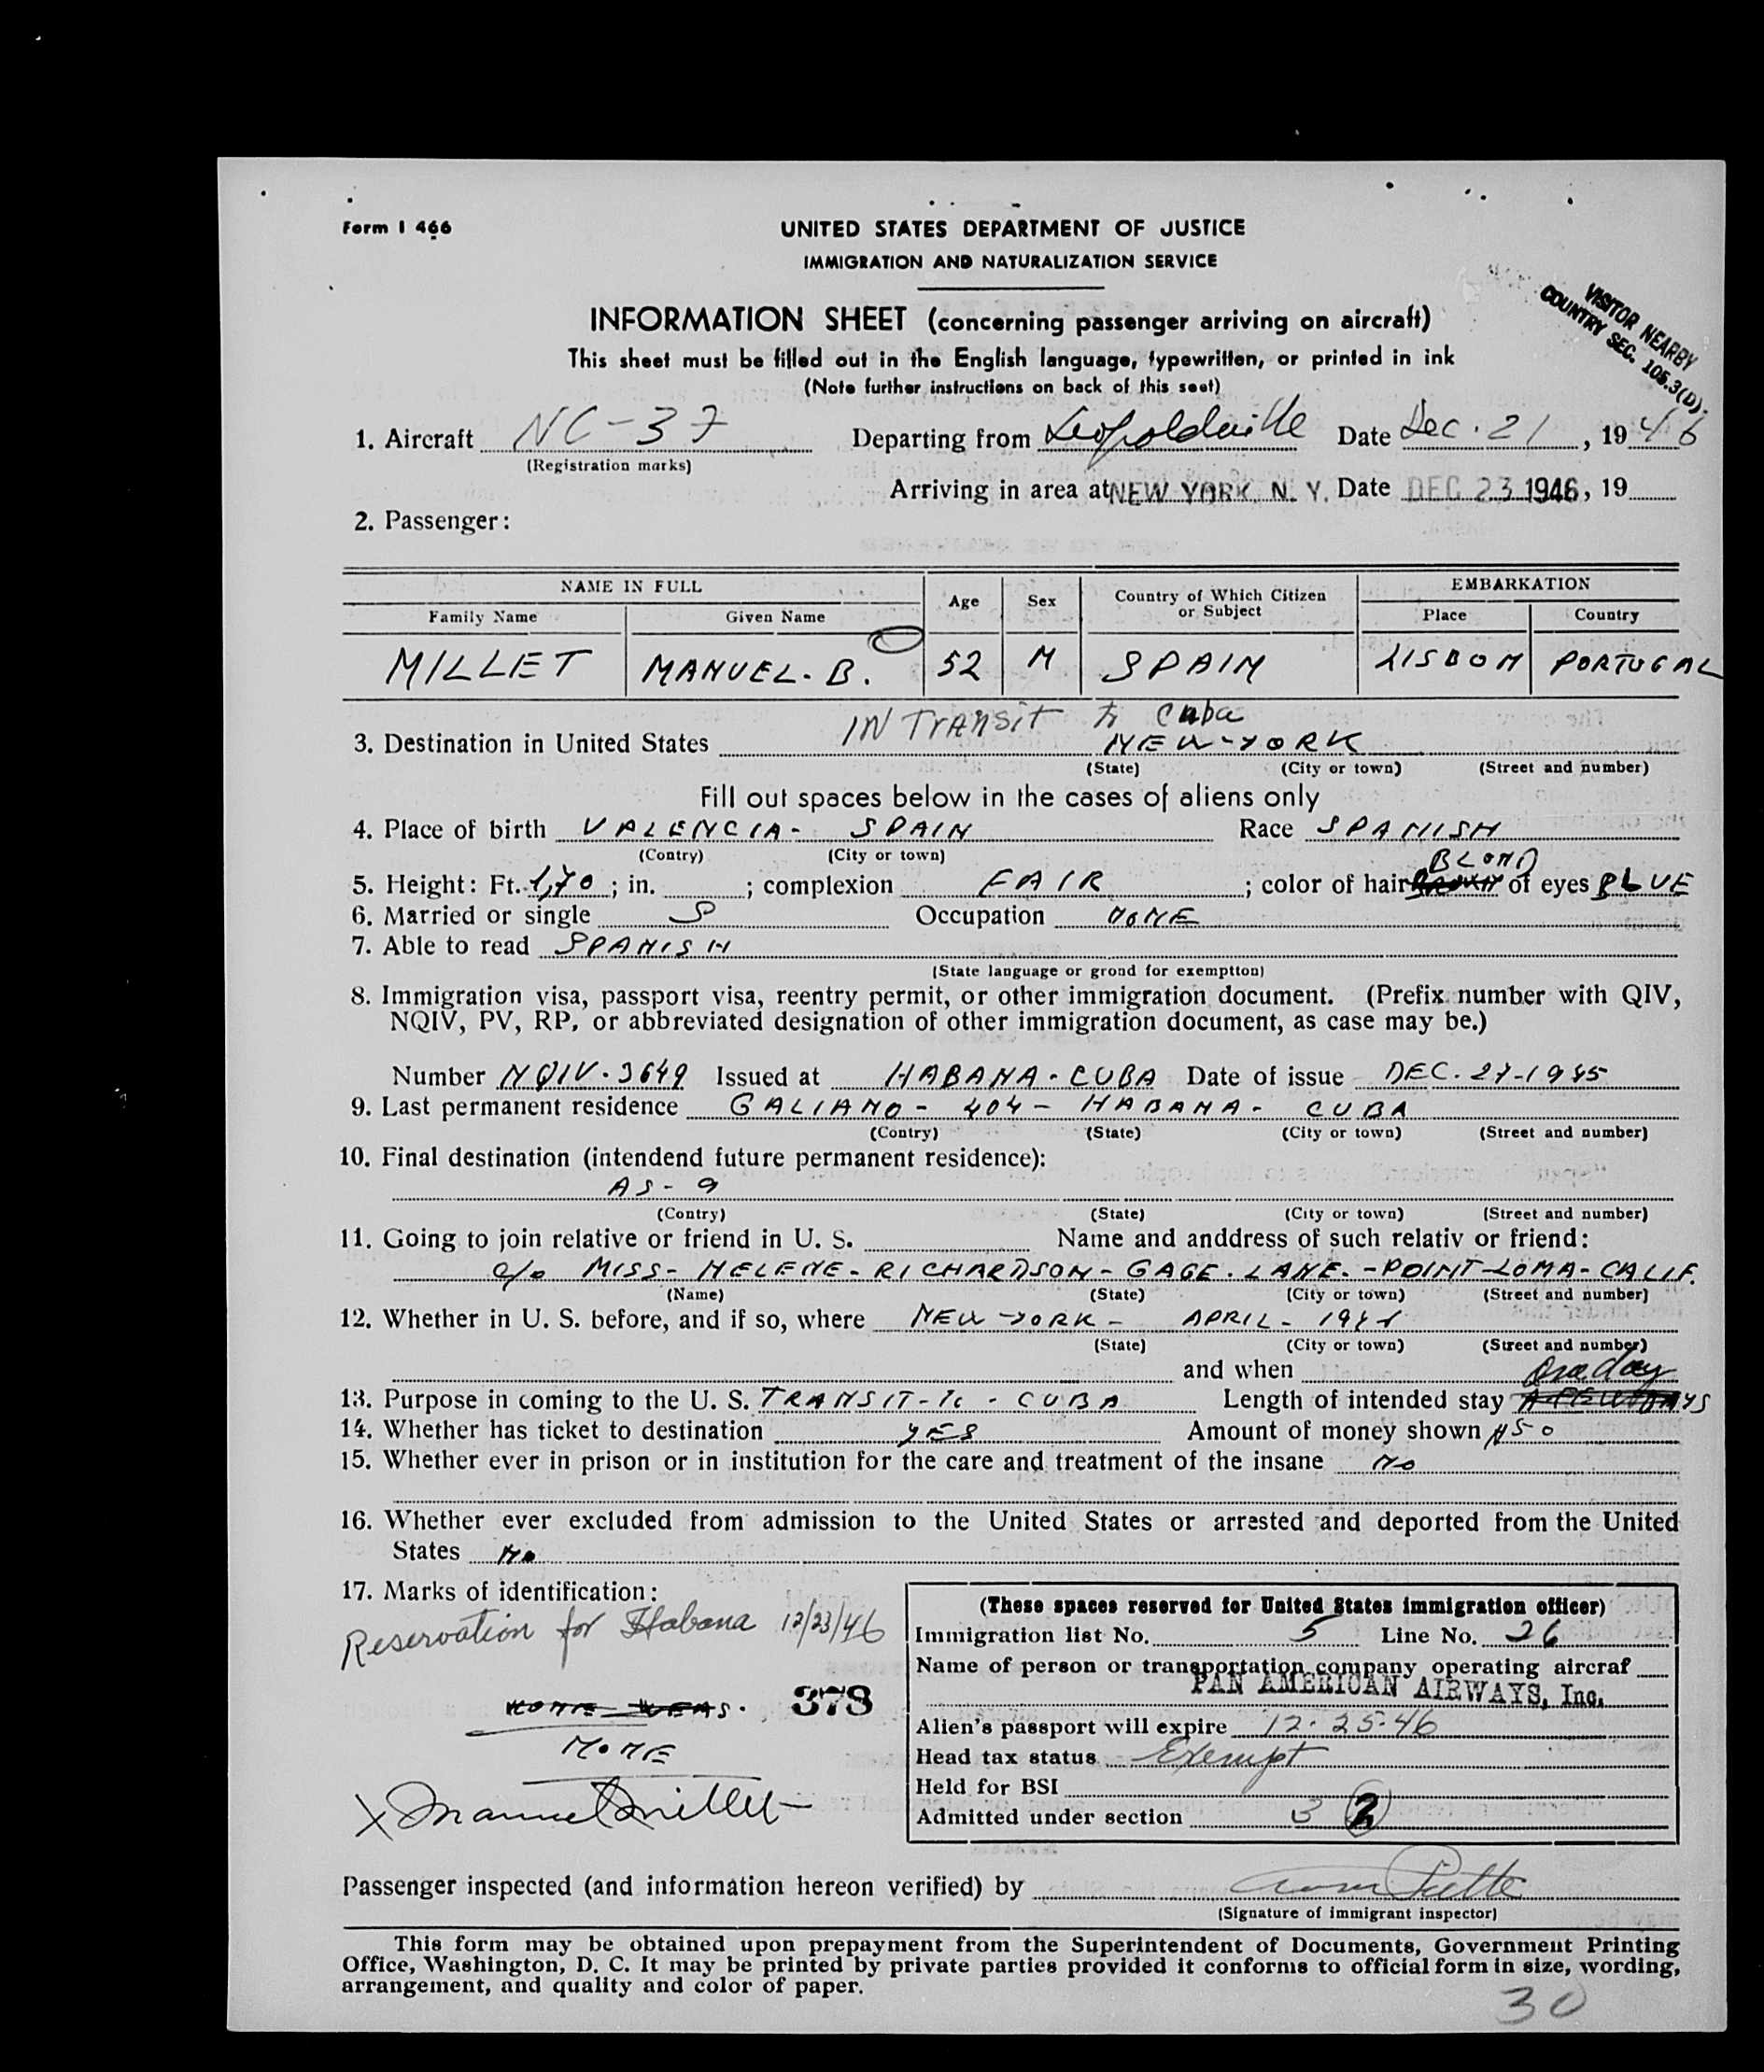 Form I 466
UNITED STATES DEPARTMENT OF JUSTICE
IMMIGRATION AND NATURALIZATION SERVICE
VISITOR NEARBY
COUNTRY SEC. 105.3(D).
INFORMATION SHEET (concerning passenger arriving on aircraft)
This sheet must be filled out in the English language, typewritten, or printed in ink
(Note further instructions on back of this seet)
1. Aircraft NC-37 Departing from Leopoldville Date Dec. 21, 1946
(Registration marks)
Arriving in area at NEW YORK, N. Y. Date DEC 23 1946, 19
2. Passenger:
NAME IN FULL Age Sex Country of Which Citizen or Subject EMBARKATION
Family Name Given Name Place Country
MILLET MANUEL. B. 52 M SPAIN LISBON PORTUGAL
IN TRANSIT to Cuba
3. Destination in United States NEW-YORK
(State) (City or town) (Street and number)
Fill out spaces below in the cases of aliens only
4. Place of birth VALENCIA- SPAIN Race SPANISH
(Contry) (City or town)
BLOND
5. Height: Ft. 1,70; in. ; complexion FAIR; color of hair of eyes BLUE
6. Married or single S Occupation NONE
7. Able to read SPANISH
(State language or grond for exemptton)
8. Immigration visa, passport visa, reentry permit, or other immigration document. (Prefix number with QIV,
NQIV, PV, RP, or abbreviated designation of other immigration document, as case may be.)
Number NQIV.3649 Issued at HABANA.CUBA Date of issue DEC.27-1945
9. Last permanent residence GALIANO- 404- HABANA- CUBA
(Contry) (State) (City or town) (Street and number)
10. Final destination (intendend future permanent residence):
AS-9
(Contry) (State) (City or town) (Street and number)
11. Going to join relative or friend in U. S. Name and anddress of such relativ or friend:
c/o MISS-HELENE-RICHARDSON-GAGE.LANE.-POINT-LOMA-CALIF.
(Name) (State) (City or town) (Street and number)
12. Whether in U. S. before, and if so, where NEW-YORK- APRIL-
(State) (City or town) (Street and number)
and when
One day
13. Purpose in coming to the U. S. TRANSIT-TO-CUBA Length of intended stay A FEW DAYS
14. Whether has ticket to destination YES Amount of money shown $50
15. Whether ever in prison or in institution for the care and treatment of the insane NO
16. Whether ever excluded from admission to the United States or arrested and deported from the United
States NO
17. Marks of identification:
Reservation for Habana 12/23/46
378
NONE
X Manuel Millet
(These spaces reserved for United States immigration officer)
Immigration list No. 5 Line No. 26
Name of person or transportation company operating aircraf
PAN AMERICAN AIRWAYS, Inc.
Alien's passport will expire 12-25-46
Head tax status Exempt
Held for BSI
Admitted under section 3 2
Passenger inspected (and information hereon verified) by
(Signature of immigrant inspector)
This form may be obtained upon prepayment from the Superintendent of Documents, Government Printing
Office, Washington, D. C. It may be printed by private parties provided it conforms to official form in size, wording,
arrangement, and quality and color of paper.
30